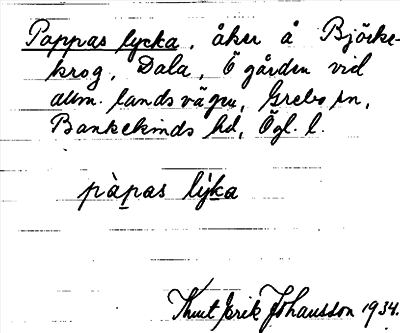 Pappas lycka, åker å Björke-
krog, Dala, Ö gården vid
allm. landsvägen, Grebo sn,
Bankekinds hd, Ögl. l.
pàpas lýka
Knut Erik Johansson 1934.